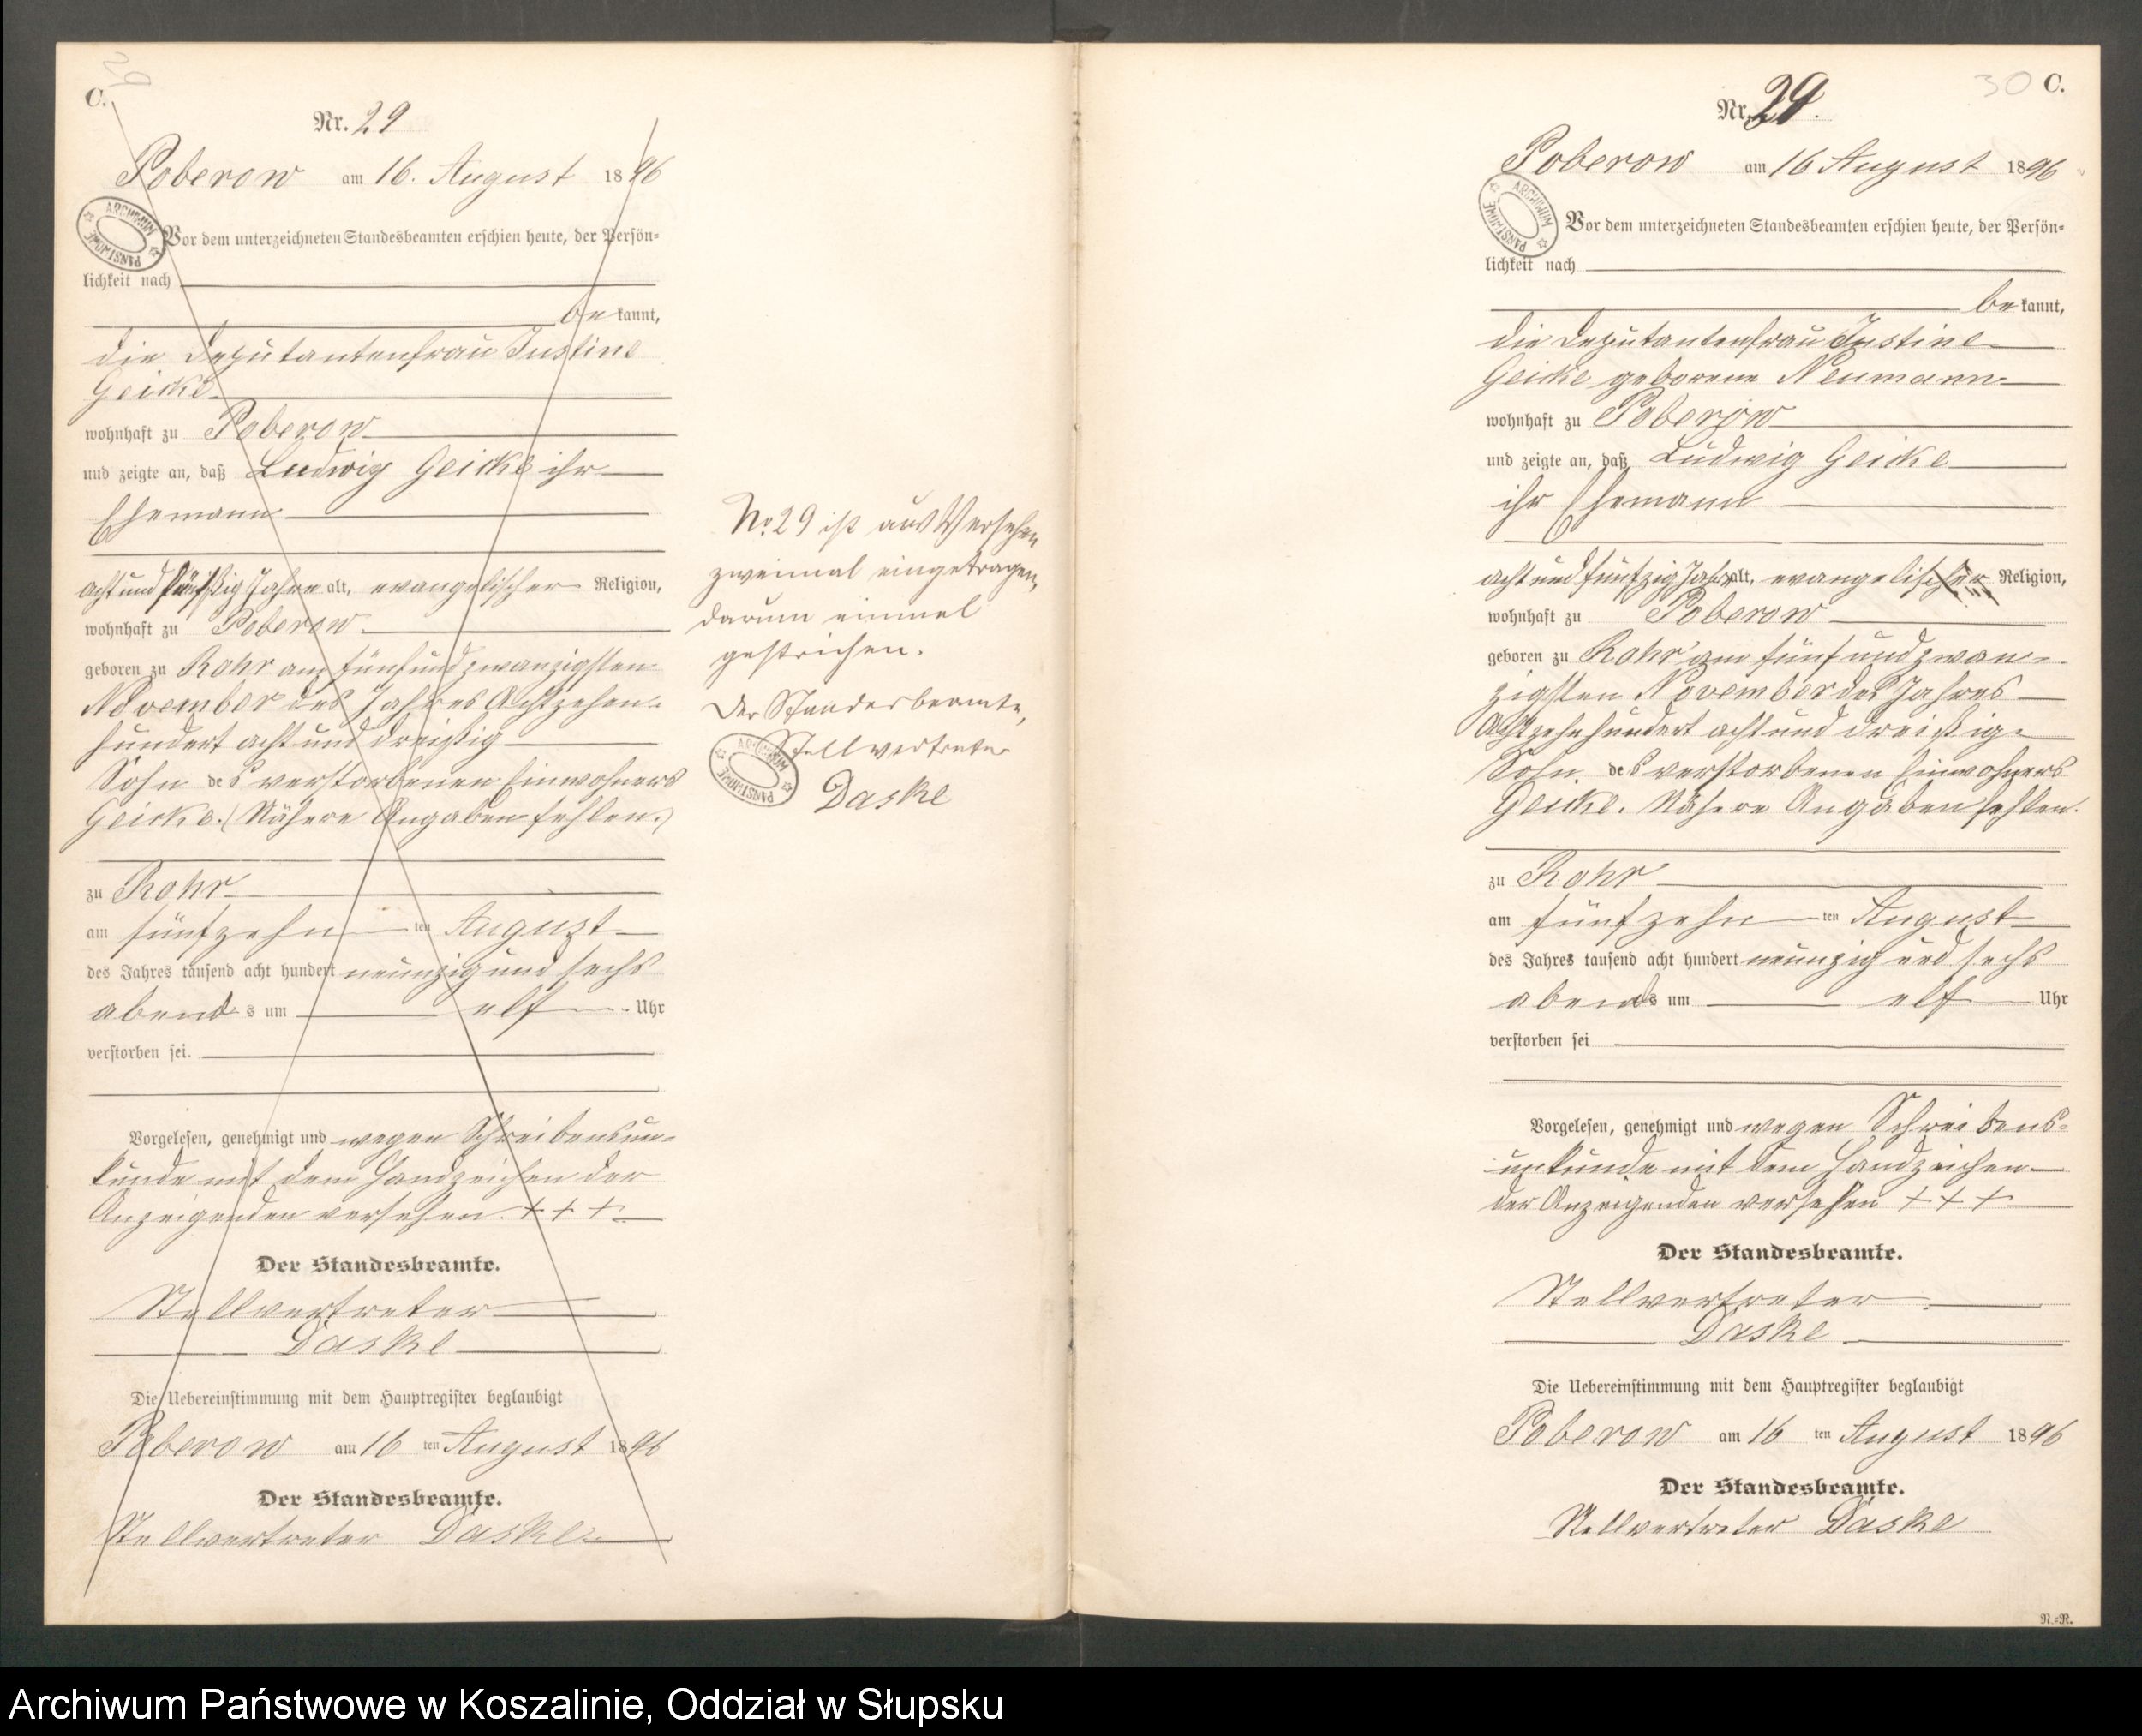 C.
Nr. 29
Poberow am 16. August 1896
Vor dem unterzeichneten Standesbeamten erschien heute, der Persön=
lichkeit nach
bekannt,
die Deputantenfrau Justine
Geicke
wohnhaft zu Poberow
und zeigte an, daß Ludwig Geicke ihr
Ehemann
acht und fünfzig Jahre alt, evangelischer Religion,
wohnhaft zu Poberow
geboren zu Rohr am fünfundzwanzigsten
November des Jahres Achtzehen=
hundert acht und dreißig
Sohn des verstorbenen Einwohners
Geicke. (Nähere Angaben fehlen.)
zu Rohr
am fünfzehn ten August
des Jahres tausend acht hundert neunzig und sechs
abends um elf Uhr
verstorben sei.
Vorgelesen, genehmigt und wegen Schreibensun=
kunde mit dem Handzeichen der
Anzeigenden versehen. + + +
Der Standesbeamte.
Stellvertreter
Daske
Die Uebereinstimmung mit dem Hauptregister beglaubigt
Poberow am 16 ten August 1896
Der Standesbeamte.
Stellvertreter Daske
No. 29 ist aus Versehen
zweimal eingetragen,
darum einmal
gestrichen.
Der Standesbeamte,
Stellvertreter
Daske
ARCHIWUM PAŃSTWOWE
30 C.
Nr. 29.
Poberow am 16 August 1896
Vor dem unterzeichneten Standesbeamten erschien heute, der Persön=
lichkeit nach
bekannt,
die Deputantenfrau Justine
Geicke geborene Neumann
wohnhaft zu Poberow
und zeigte an, daß Ludwig Geicke
ihr Ehemann
acht und fünfzig Jahre alt, evangelischer Religion,
wohnhaft zu Poberow
geboren zu Rohr am fünfundzwan=
zigsten November des Jahres
Achtzehnhundert acht und dreißig
Sohn des verstorbenen Einwohners
Geicke. Nähere Angaben fehlen.
zu Rohr
am fünfzehn ten August
des Jahres tausend acht hundert neunzig und sechs
abends um elf Uhr
verstorben sei
Vorgelesen, genehmigt und wegen Schreibens=
unkunde mit dem Handzeichen
der Anzeigenden versehen + + +
Der Standesbeamte.
Stellvertreter
Daske
Die Uebereinstimmung mit dem Hauptregister beglaubigt
Poberow am 16 ten August 1896
Der Standesbeamte.
Stellvertreter Daske
R.=R.
Archiwum Państwowe w Koszalinie, Oddział w Słupsku